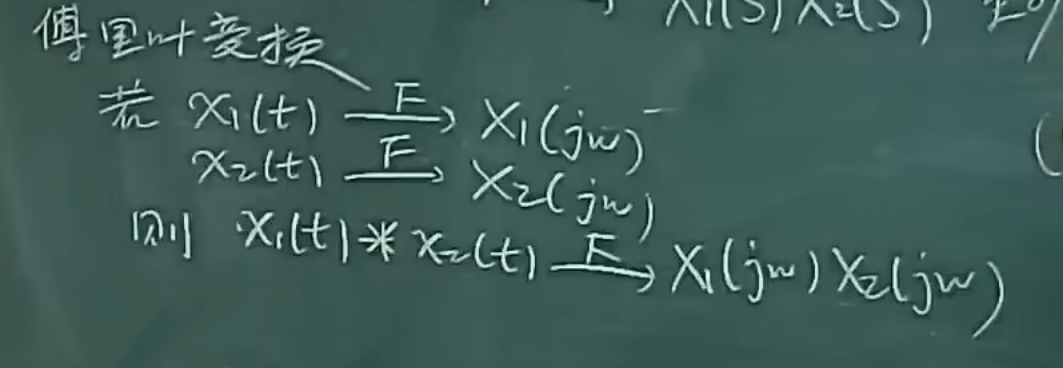 X1(S) X2(S)
傅里叶变换
若 x1(t) F→ X1(jw)
x2(t) F→ X2(jw)
则 x1(t) * x2(t) F→ X1(jw) X2(jw)
(